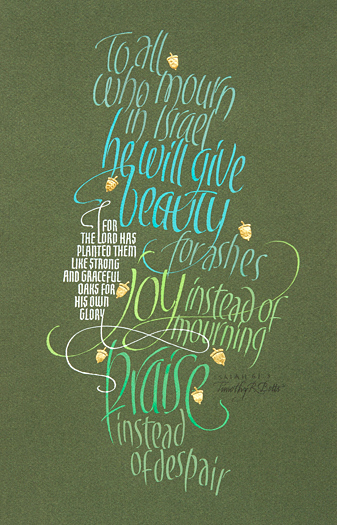 To all
who mourn
in Israel
he will give
beauty
for ashes
joy instead of
mourning
praise
instead
of despair
FOR
THE LORD HAS
PLANTED THEM
LIKE STRONG
AND GRACEFUL
OAKS FOR
HIS OWN
GLORY
ISAIAH 61:3
Timothy R. Botts